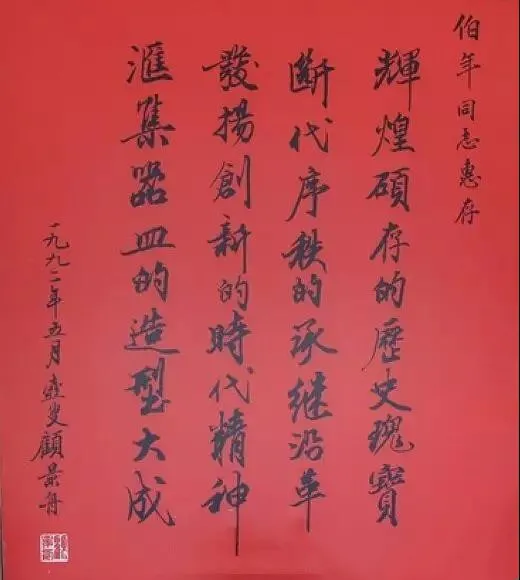 伯年同志惠存
輝煌碩存的歷史瑰寶
斷代序秩的承继沿革
發揚創新的時代精神
滙集器皿的造型大成
一九九二年五月壶叟顧景舟